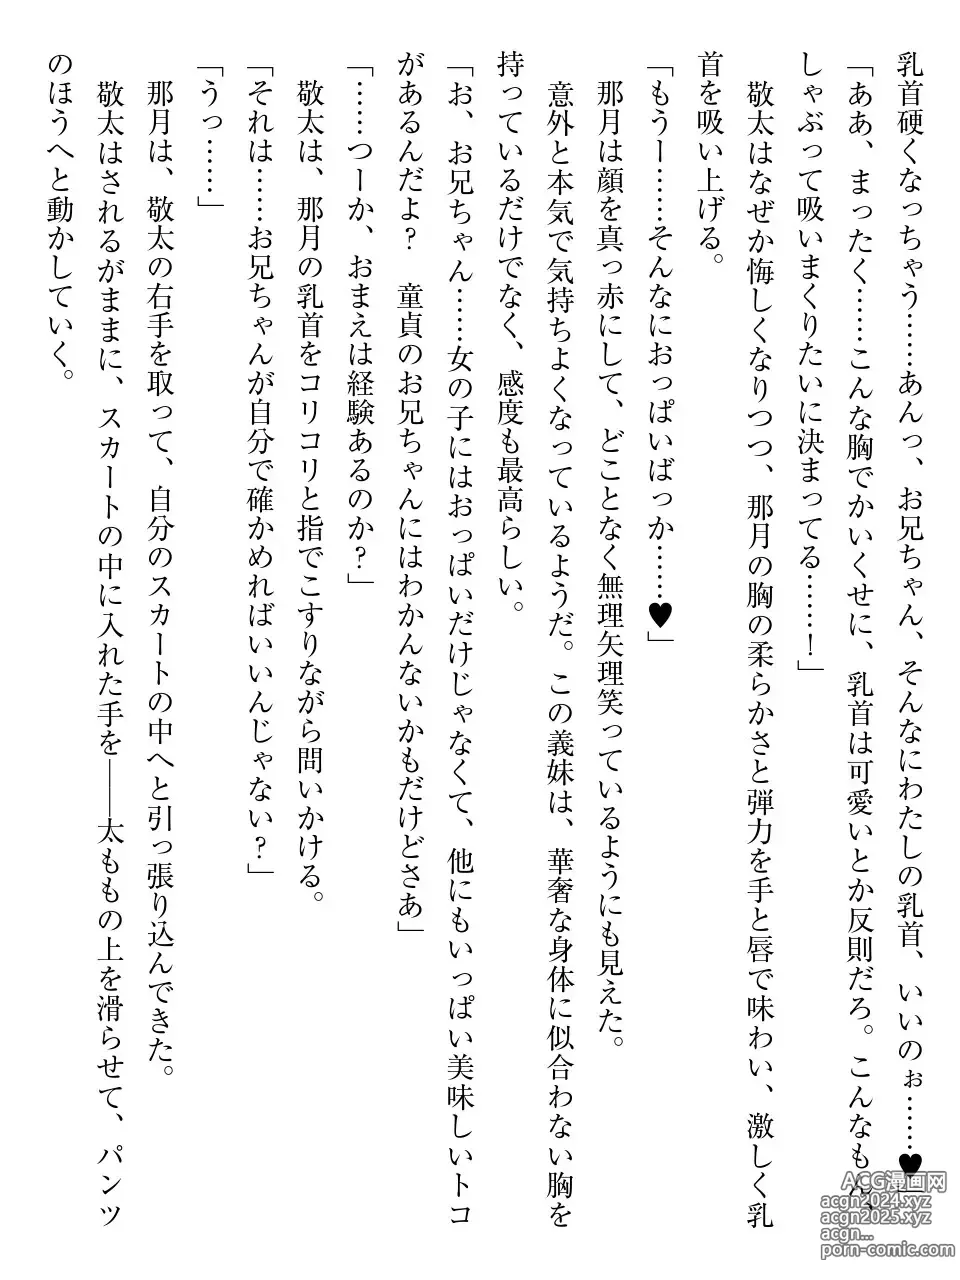 乳首硬くなっちゃう……あんっ、お兄ちゃん、そんなにわたしの乳首、いいのぉ……♥」
「ああ、まったく……こんな胸でかいくせに、乳首は可愛いとか反則だろ。こんなもん、
しゃぶって吸いまくりたいに決まってる……！」
敬太はなぜか悔しくなりつつ、那月の胸の柔らかさと弾力を手と唇で味わい、激しく乳
首を吸い上げる。
「もうー……そんなにおっぱいばっか……♥」
那月は顔を真っ赤にして、どことなく無理矢理笑っているようにも見えた。
意外と本気で気持ちよくなっているようだ。この義妹は、華奢な身体に似合わない胸を
持っているだけでなく、感度も最高らしい。
「お、お兄ちゃん……女の子にはおっぱいだけじゃなくて、他にもいっぱい美味しいトコ
があるんだよ？　童貞のお兄ちゃんにはわかんないかもだけどさあ」
「……つーか、おまえは経験あるのか？」
敬太は、那月の乳首をコリコリと指でこすりながら問いかける。
「それは……お兄ちゃんが自分で確かめればいいんじゃない？」
「うっ……」
那月は、敬太の右手を取って、自分のスカートの中へと引っ張り込んできた。
敬太はされるがままに、スカートの中に入れた手を――太ももの上を滑らせて、パンツ
のほうへと動かしていく。
ACG漫画网
acgn2024.xyz
acgn2025.xyz
acgn...
porn-comic.com